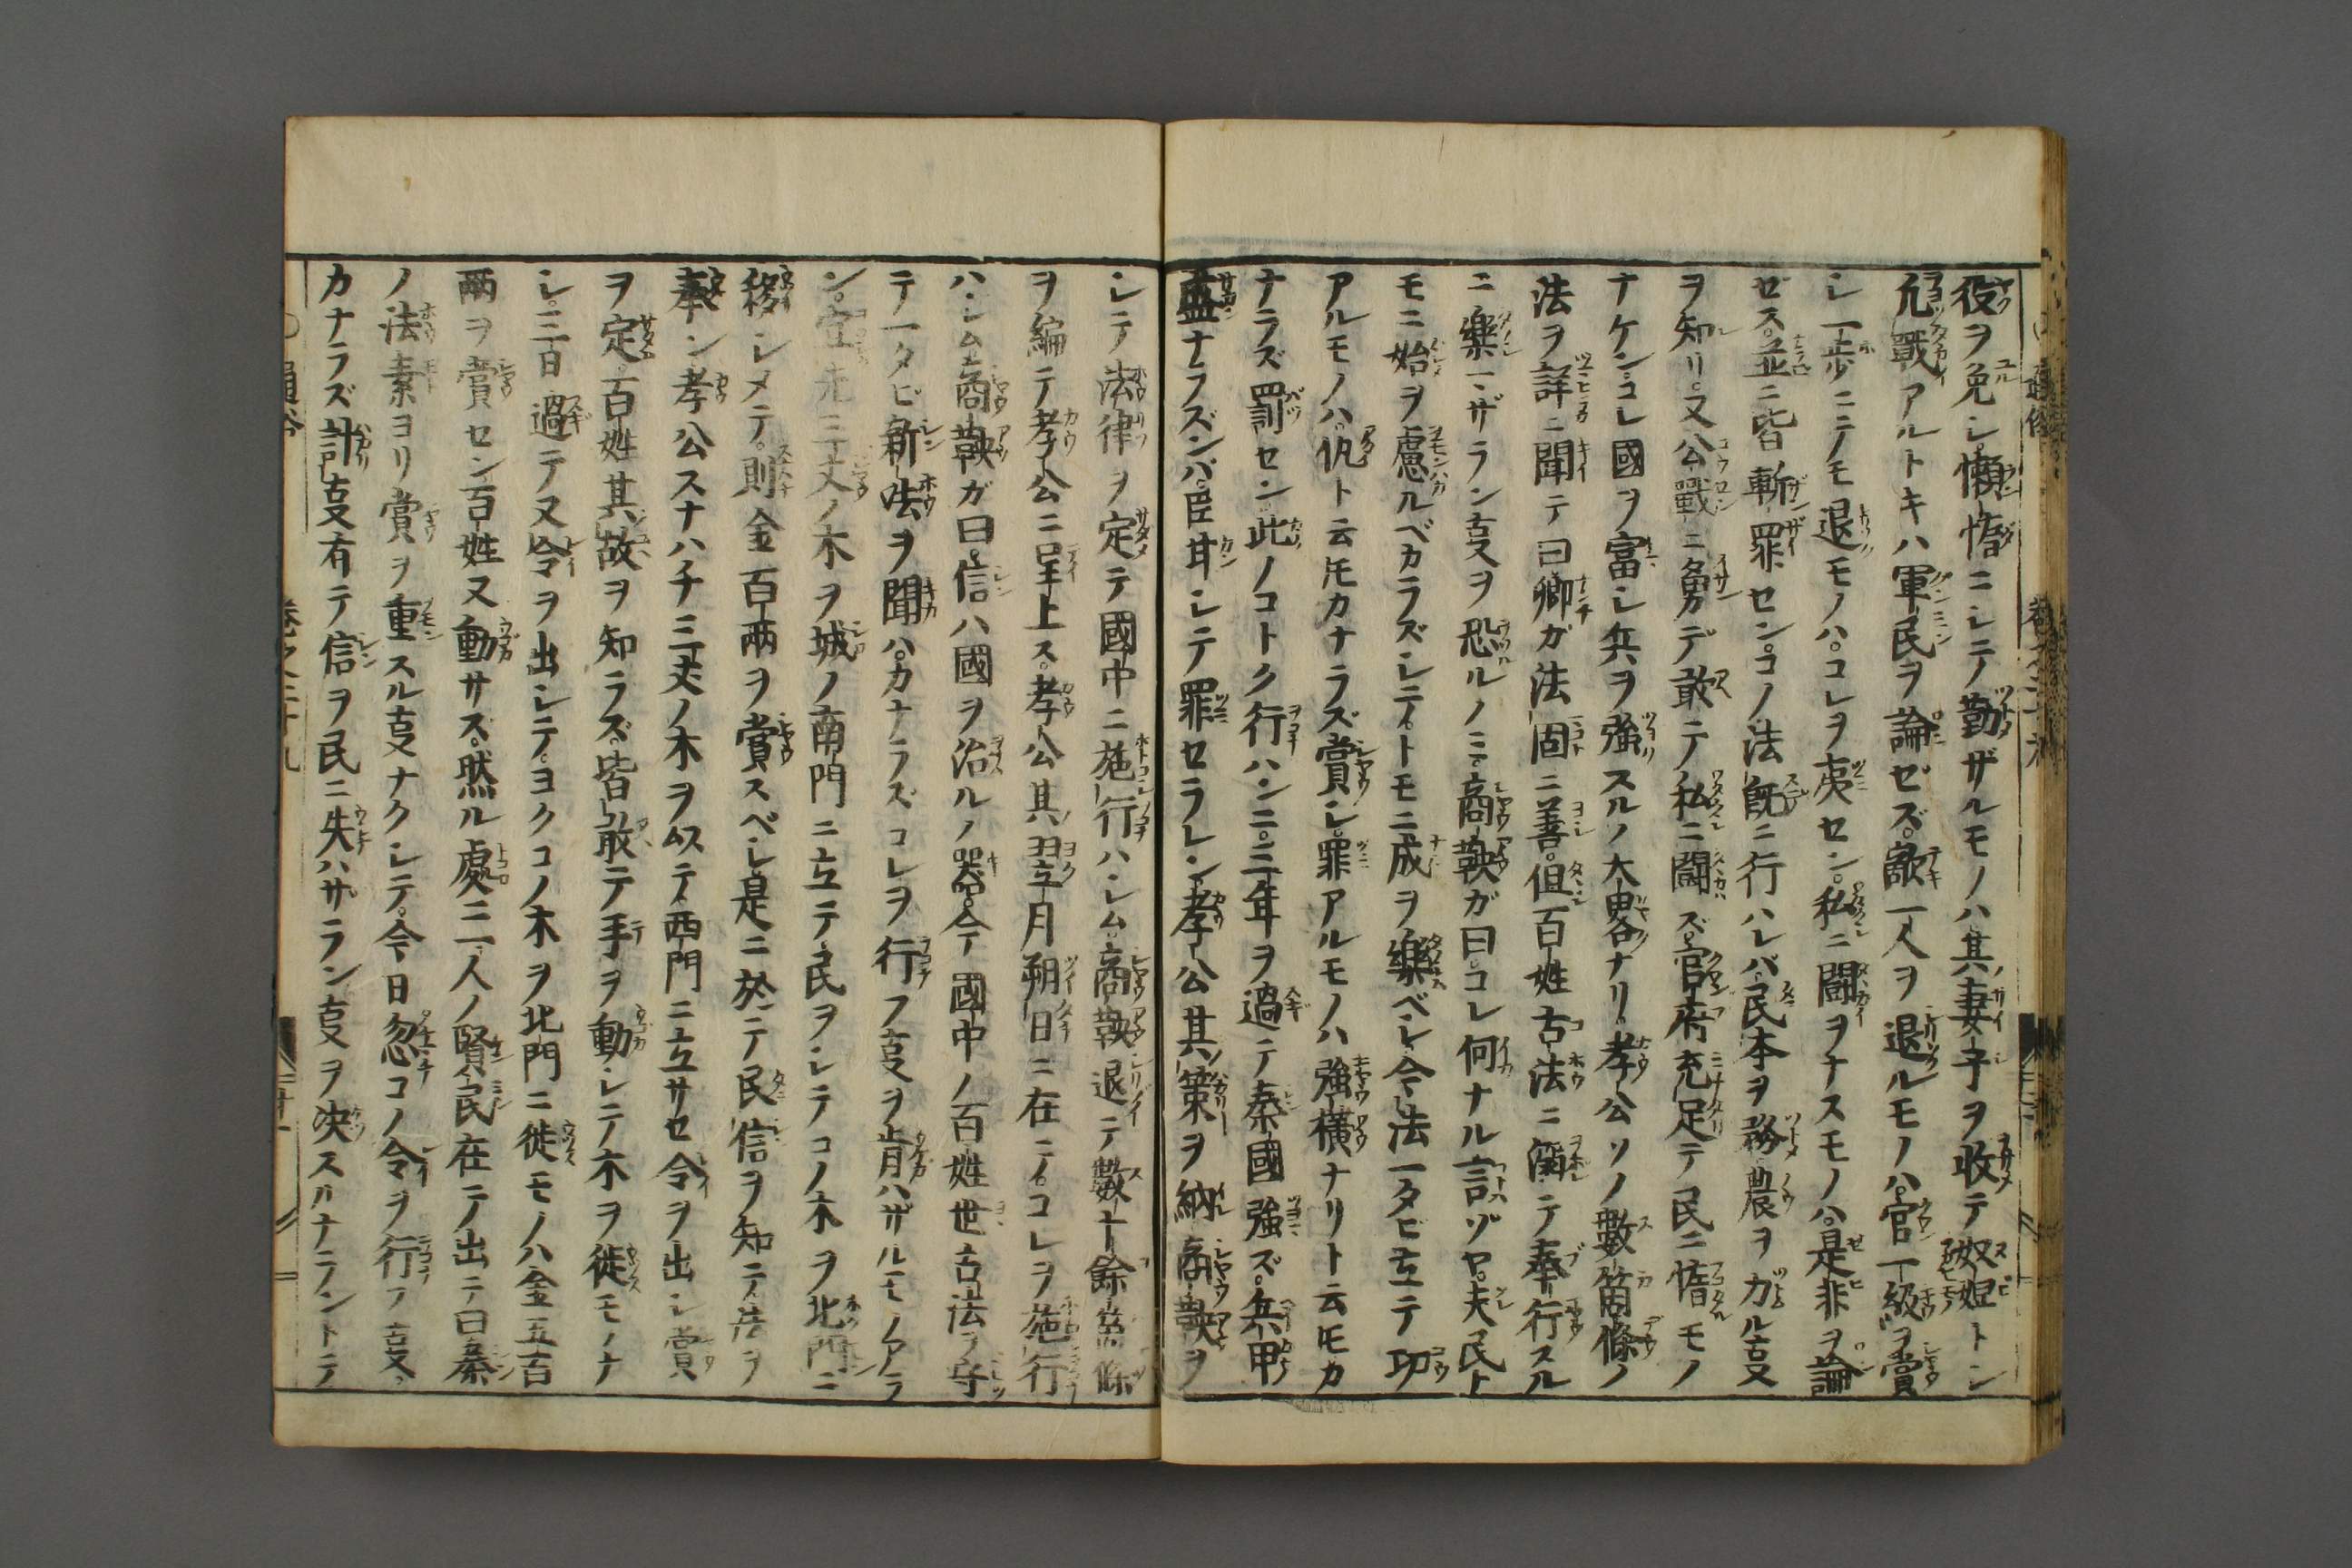 役ヲ免シ懶惰ニシテ勤ザルモノハ其妻子ヲ收テ奴婢トシ
凢戰アルトキハ軍民ヲ論ゼズ敵一人ヲ退ルモノハ官一級ヲ賞
シ一歩ニテモ退モノハコレヲ夷セン私ニ闘ヲナスモノハ是非ヲ論
ゼス並ニ皆斬罪センコノ法既ニ行ハレバ民本ヲ務農ヲ力ル叓
ヲ知リ又公戰ニ勇デ敢テ私ニ闘ズ官府充足テ民ニ惰モノ
ナケンコレ國ヲ富シ兵ヲ強スルノ大畧ナリ孝公ソノ數箇條ノ
法ヲ詳ニ聞テ曰卿ガ法固ニ善但百姓古法ニ溺テ奉行スル
ニ樂マザラン叓ヲ恐ルノミ商鞅ガ曰コレ何ナル言ゾヤ夫民ト
モニ始ヲ慮ルベカラズシテトモニ成ヲ樂ベシ今法一タビ立テ功
アルモノハ仇ト云𪜈カナラズ賞シ罪アルモノハ強横ナリト云𪜈カ
ナラズ罰セン此ノコトク行ハンニ三年ヲ過テ秦國強ズ兵甲
盛ナラズンバ臣甘シテ罪セラレン孝公其策ヲ納商鞅ヲ
シテ法律ヲ定テ國中ニ施行ハシム商鞅退テ數十餘箇條
ヲ編テ孝公ニ呈上ス孝公其翌月朔日ニ在テコレヲ施行
ハシム商鞅ガ曰信ハ國ヲ治ルノ器今國中ノ百姓世古法ヲ守
テ一タビ新法ヲ聞ハカナラズコレヲ行フ叓ヲ肯ハザルモノアラ
ン宜先三丈ノ木ヲ城ノ南門ニ立テ民ヲシテコノ木ヲ北門ニ
移シメテ則金百兩ヲ賞スベシ是ニ於テ民信ヲ知テ法ヲ
奉ン孝公スナハチ三丈ノ木ヲ以テ西門ニ立サセ令ヲ出シ賞
ヲ定百姓其故ヲ知ラズ皆敢テ手ヲ動シテ木ヲ徙モノナ
シ三日過テ又令ヲ出シテヨクコノ木ヲ北門ニ徙モノハ金五百
兩ヲ賞セン百姓又動サズ然ル處ニ一人ノ賢民在テ出テ曰秦
ノ法素ヨリ賞ヲ重スル叓ナクシテ今日忽コノ令ヲ行フ叓
カナラズ計叓有テ信ヲ民ニ失ハサラン叓ヲ决スルナラントテ